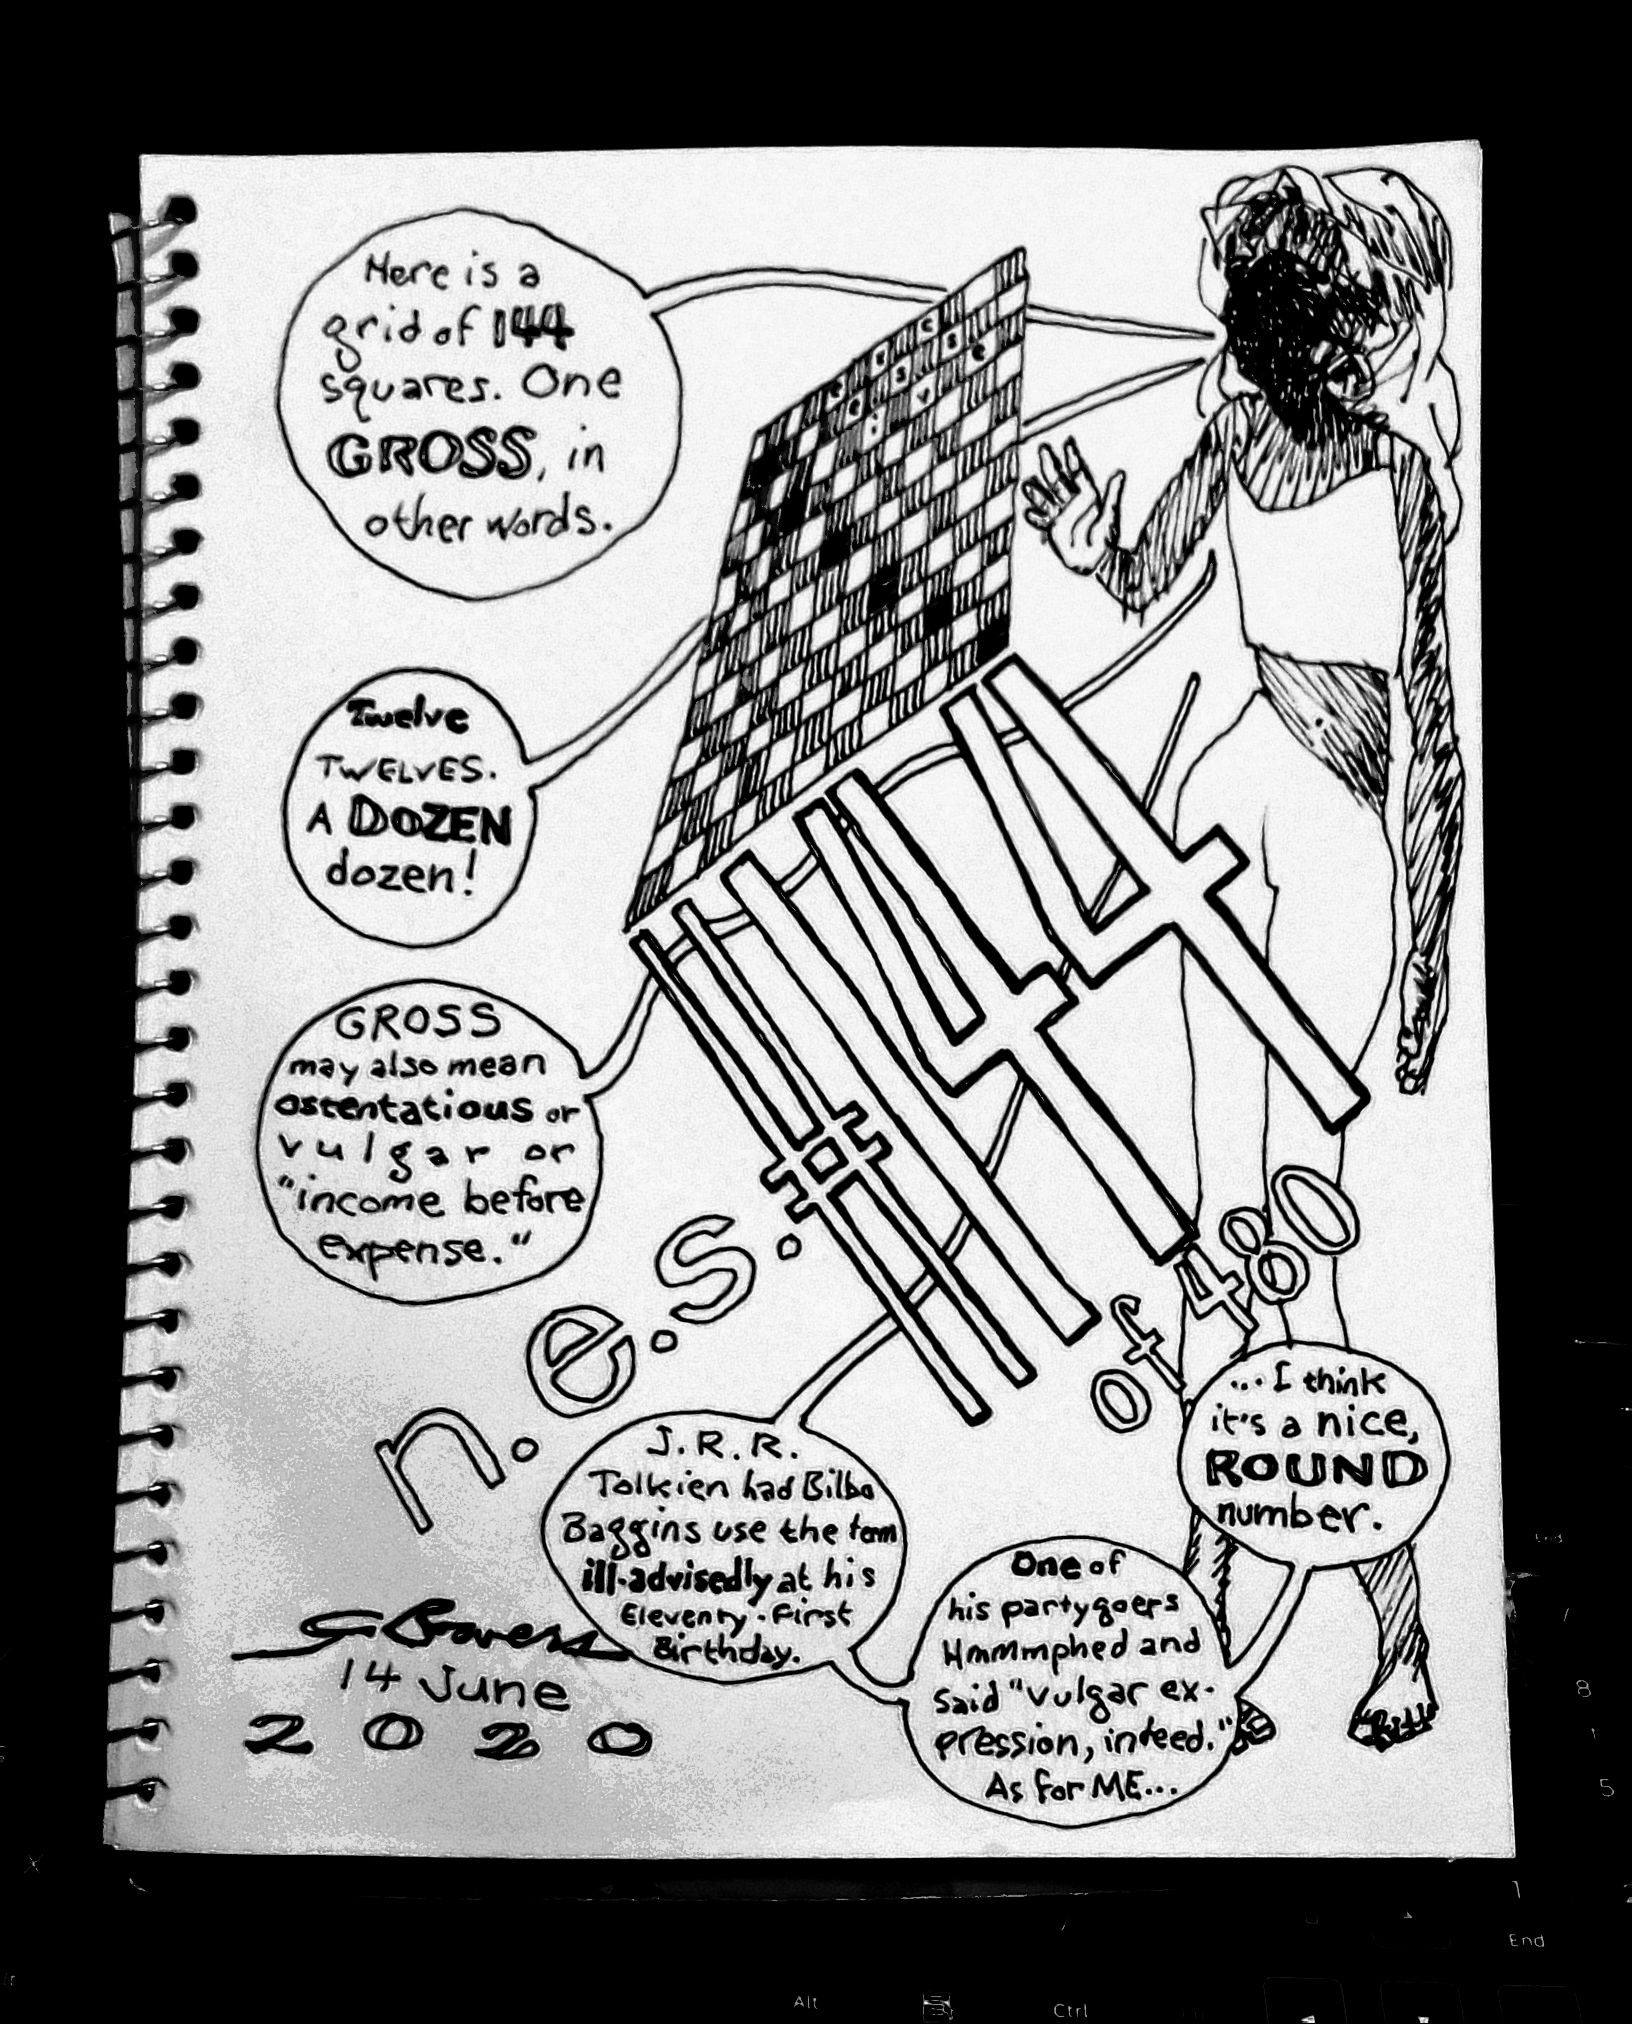 Here is a
grid of 144
squares. One
GROSS, in
other words.
Twelve
TWELVES.
A DOZEN
dozen!
GROSS
may also mean
ostentatious or
vulgar or
"income before
expense."
n.e.s.
#144
of 480
J.R.R.
Tolkien had Bilbo
Baggins use the term
ill-advisedly at his
Eleventy-First
Birthday.
One of
his partygoers
Hmmmphed and
said "vulgar ex-
pression, indeed."
As for ME...
...I think
it's a nice,
ROUND
number.
14 June
2020
8
5
End
Alt
Ctrl